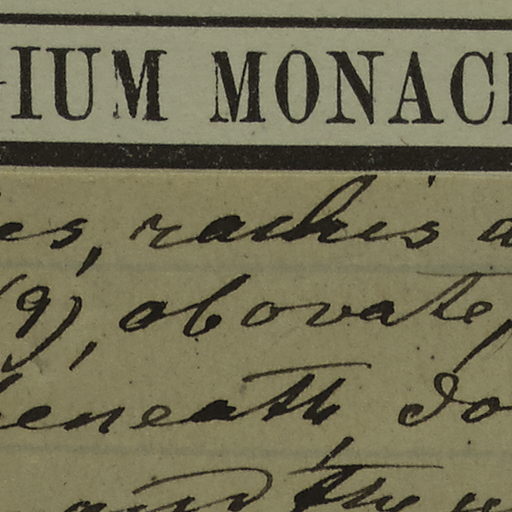 GIUM MONAC
es, rachis a
(9), obovate,
beneath, do
and the